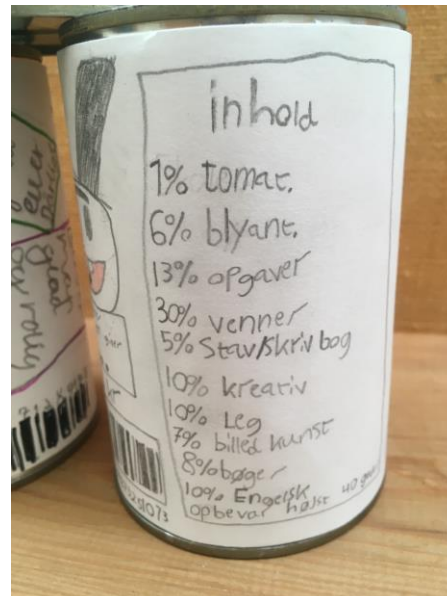 inhold
1% tomat.
6% blyant.
13% opgaver
30% venner
5% Stav/skriv bog
10% kreativ
10% Leg
7% billed kunst
8% bøger
10% Engelsk
opbevar højst 40